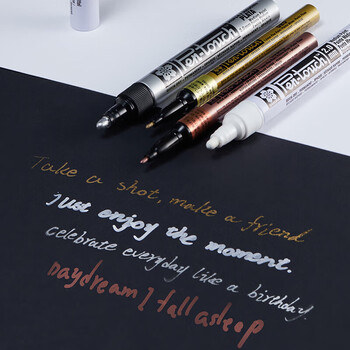 Pen-touch
Pen-touch
Pen-touch 2.0
Take a shot, make a friend
Just enjoy the moment.
celebrate everyday like a birthday.
Daydream I fall asleep